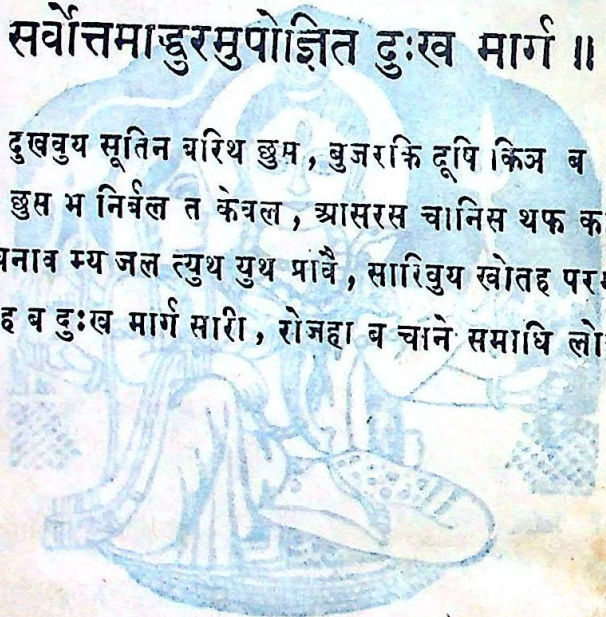 सर्वोत्तमाद्धुरमुपोज्ञित दुःख मार्ग ॥
दुखवुय सूतिन बरिथ छुम, बुजरकि दूषि किञ ब
छुस भ निर्बल त केवल, आसरस चानिस थफ क
बनाव म्य जल त्युथ युथ प्रावै, सारिवुय खोतह पर
ह ब दुःख मार्ग सारी, रोजहा ब चाने समाधि लो